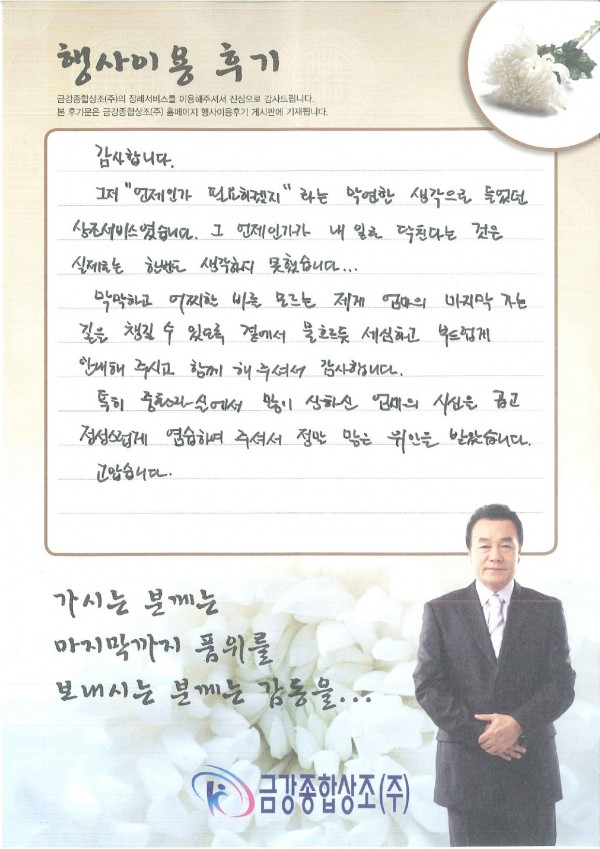 행사이용 후기
금강종합상조(주)의 장례서비스를 이용해주셔서 진심으로 감사드립니다.
본 후기문은 금강종합상조(주) 홈페이지 행사이용후기 게시판에 기재됩니다.
감사합니다.
그저 "언제인가 필요하겠지"라는 막연한 생각으로 들었던
상조서비스였습니다. 그 언제인가가 내 일로 닥친다는 것은
실제로는 한번도 생각하지 못했습니다...
막막하고 어찌할 바를 모르는 제게 엄마의 마지막 가는
길을 챙길 수 있도록 곁에서 물흐르듯 세심하고 부드럽게
안내해 주시고 함께 해 주셔서 감사합니다.
특히 중환자실에서 많이 상하신 엄마의 시신을 곱고
정성스럽게 염습하여 주셔서 정말 많은 위안을 받았습니다.
고맙습니다.
가시는 분께는
마지막까지 품위를
보내시는 분께는 감동을...
금강종합상조(주)